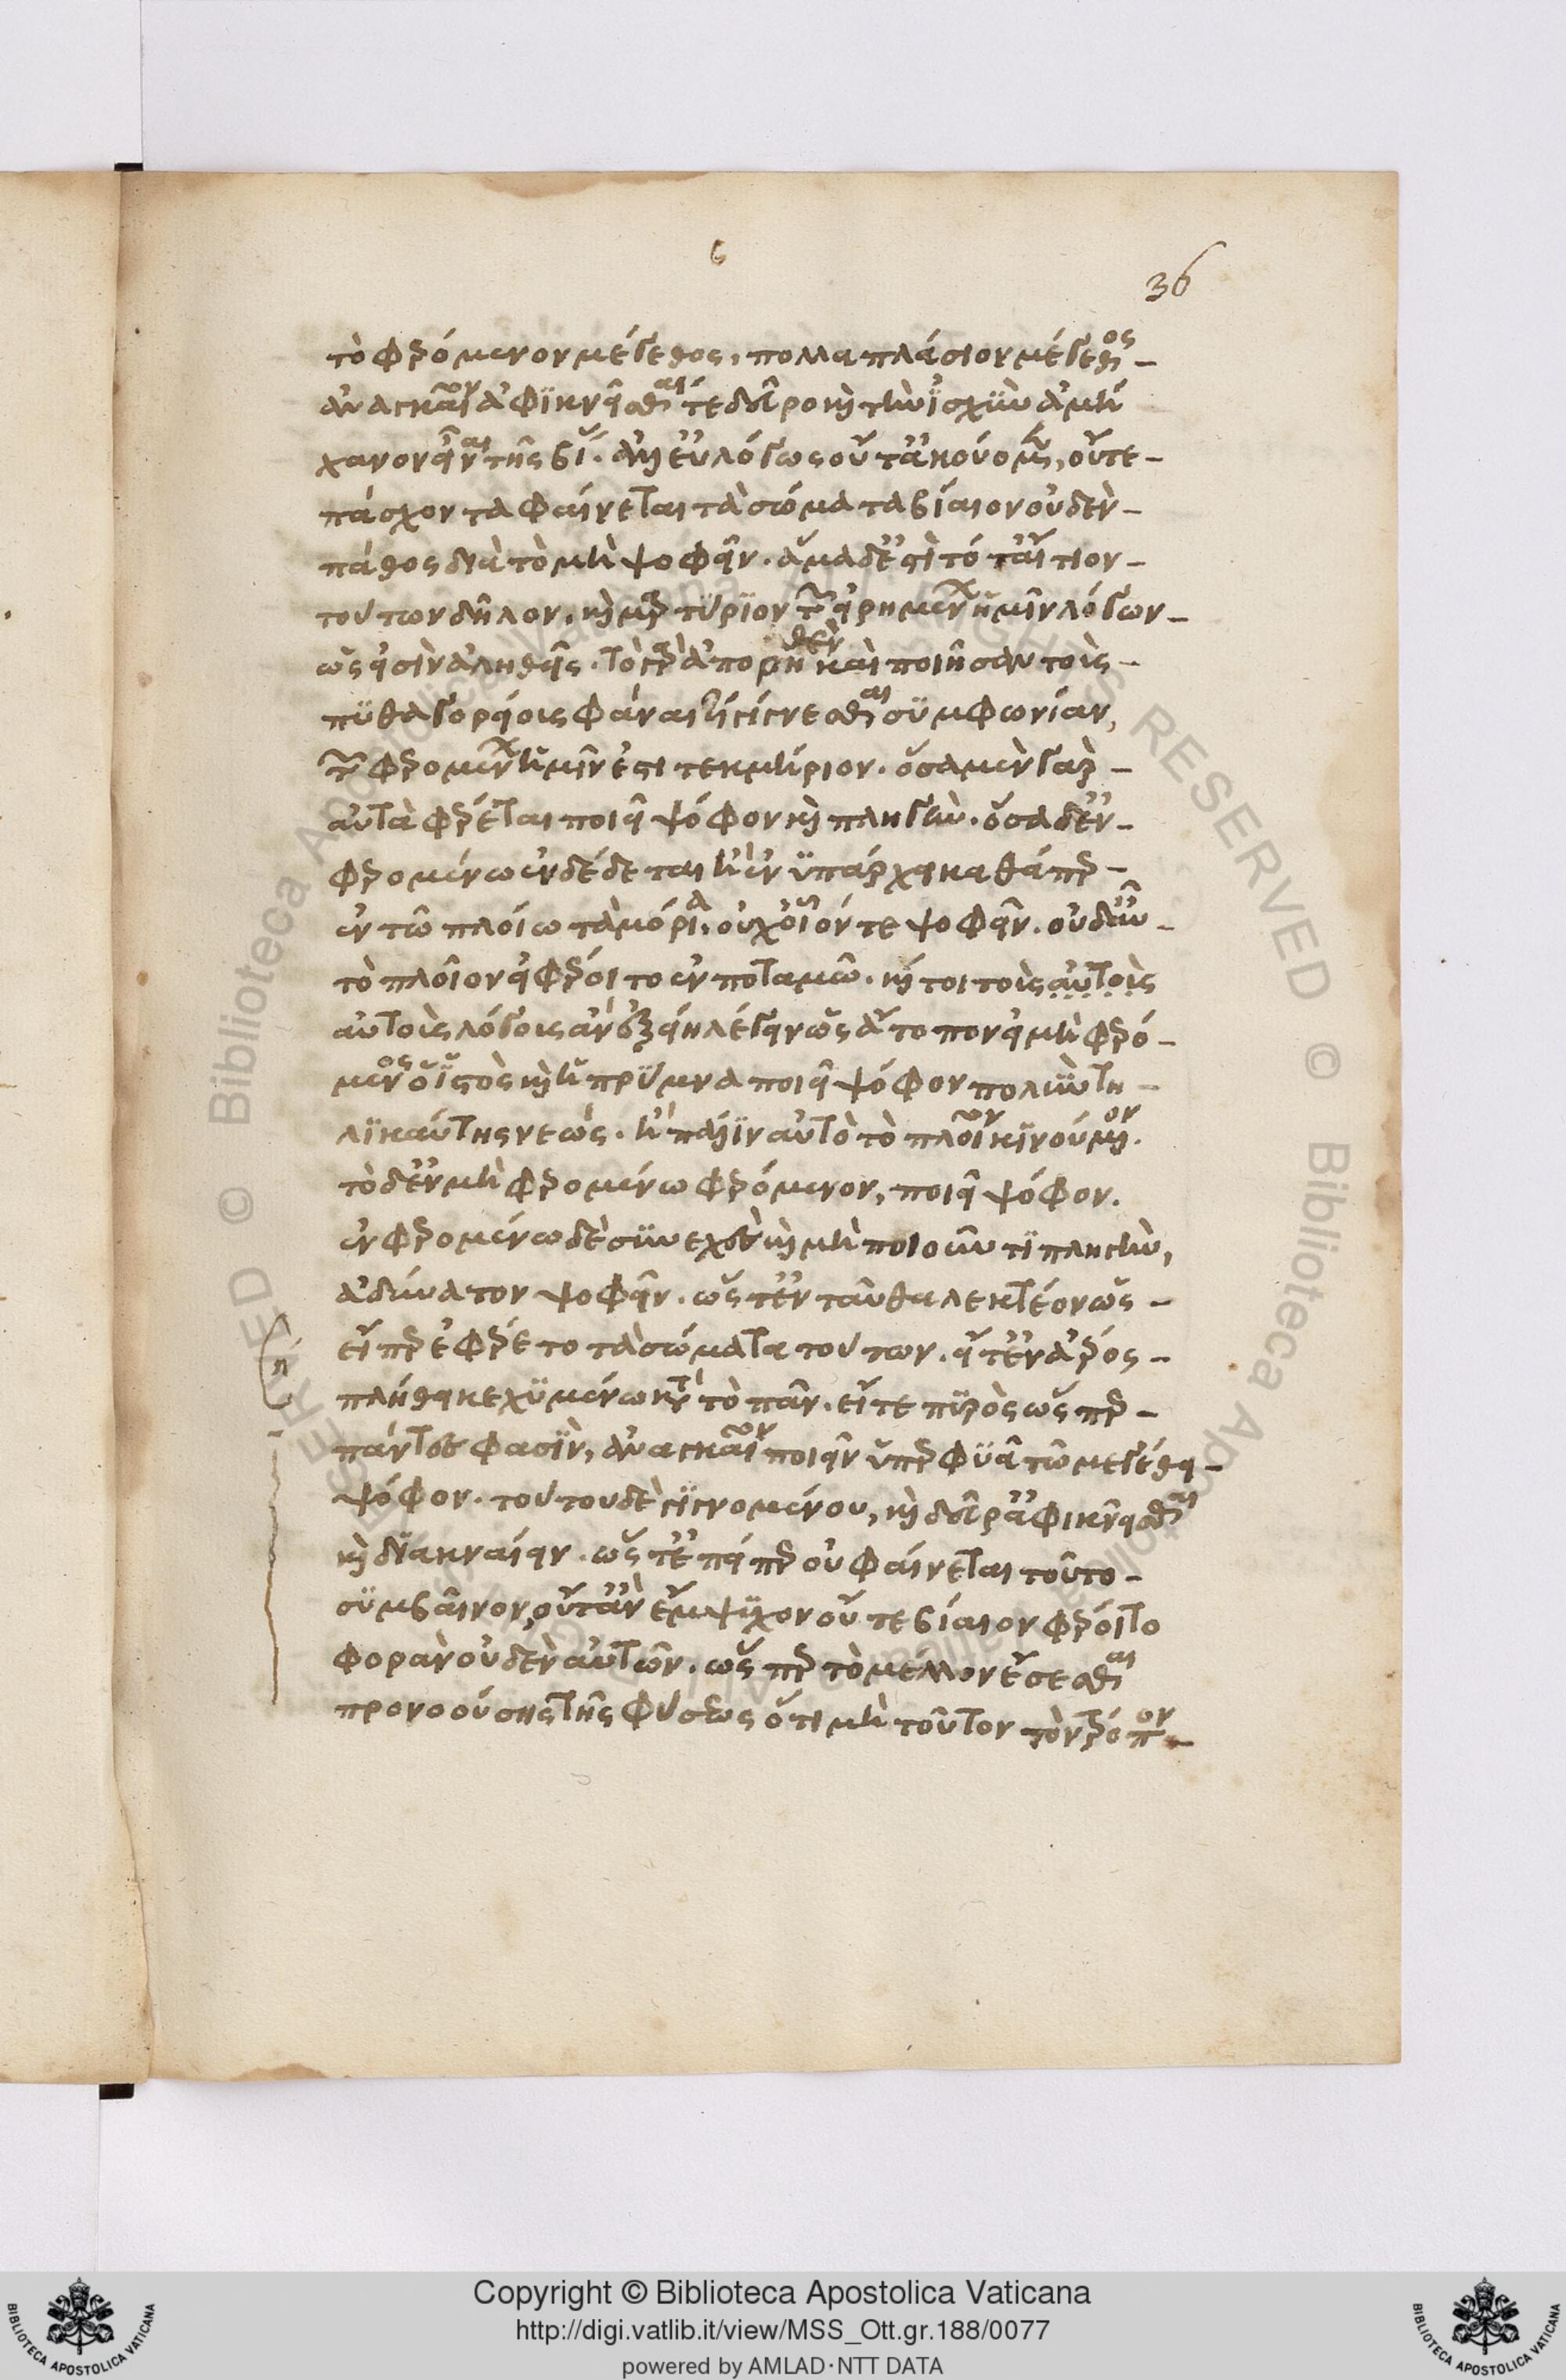 6
36
τὸ φερόμενον μέγεθος, πολλαπλάσιον μέγεθος
ἀναγκαῖον ἀφϊκνεῖσθαί τε δεῦρο καὶ τὴν ϊσχὺν ἀμή
χανον εἶναι τῆς βί. ἀλλ' εὐλόγως οὔτ' ἀκούομεν, οὔτε
πάσχοντα φαίνεται τὰ σώματα βίαιον οὐδὲν
πάθος διὰ τὸ μὴ ψοφεῖν. ἅμα δ' ἐστὶ τό τ' αἴτιον
τούτων δῆλον, καὶ μαρτύριον τῶν εἰρημένων ἡμῖν λόγων
ὥς εἰσὶν ἀληθεῖς. τὸ γὰρ ἀπορηθὲν καὶ ποιῆσαν τοὺς
πυθαγορείοις φάναι γίγνεσθαι συμφωνίαν,
τῶν φερομένων ἡμῖν ἐστι τεκμήριον. ὅσα μὲν γὰρ
αὐτὰ φέρεται ποιεῖ ψόφον καὶ πληγήν. ὅσα δ' ἐν
φερομένω ἐνδέδεται ἢ ἐνυπάρχει καθάπερ
ἐν τῶ πλοίω τὰ μόρια. οὐχ οἷόν τε ψοφεῖν. οὐδ' ἂν
τὸ πλοῖον εἰ φέροιτο ἐν ποταμῶ. καίτοι τοῖς αὐτοῖς
αὐτοῖς λόγοις ἂν ἐξείη λέγειν ὡς ἄτοπον εἰ μὴ φερό
μενος ὁ ϊστὸς καὶ ἡ πρύμνα ποιεῖ ψόφον πολὺν τη
λϊκαύτης νεώς. ἢ πάλιν αὐτὸ τὸ πλοῖον κϊνούμενον.
τὸ δ' ἐν μὴ φερομένω φερόμενον, ποιεῖ ψόφον.
ἐν φερομένω δὲ συνεχὲς καὶ μὴ ποιοῦν τϊ πληγὴν,
ἀδύνατον ψοφεῖν. ὥστ' ἐνταῦθα λεκτέον ὡς
εἴπερ ἐφέρετο τὰ σώματα τούτων. εἴτ' ἐν ἀέρος
πλήθει κεχυμένω κατὰ τὸ πᾶν. εἴτε πυρὸς ὥσπερ
πάντες φασὶν, ἀναγκαῖον ποιεῖν ὑπερφυᾶ τῶ μεγέθει
ψόφον. τούτου δὲ γϊγνομένου, καὶ δεῦρ' ἀφικνεῖσθαι
καὶ διακναίειν. ὥστ' ἐπείπερ οὐ φαίνεται τοῦτο
συμβαῖνον, οὔτ' ἂν ἔμψυχον οὔτε βίαιον φέροιτο
φορὰν οὐδὲν αὐτῶν. ὥσπερ τὸ μέλλον ἔσεσθαι
προνοούσης τῆς φύσεως ὅτι μὴ τοῦτον τὸν τρόπον
η
Copyright © Biblioteca Apostolica Vaticana
http://digi.vatlib.it/view/MSS_Ott.gr.188/0077
powered by AMLAD·NTT DATA